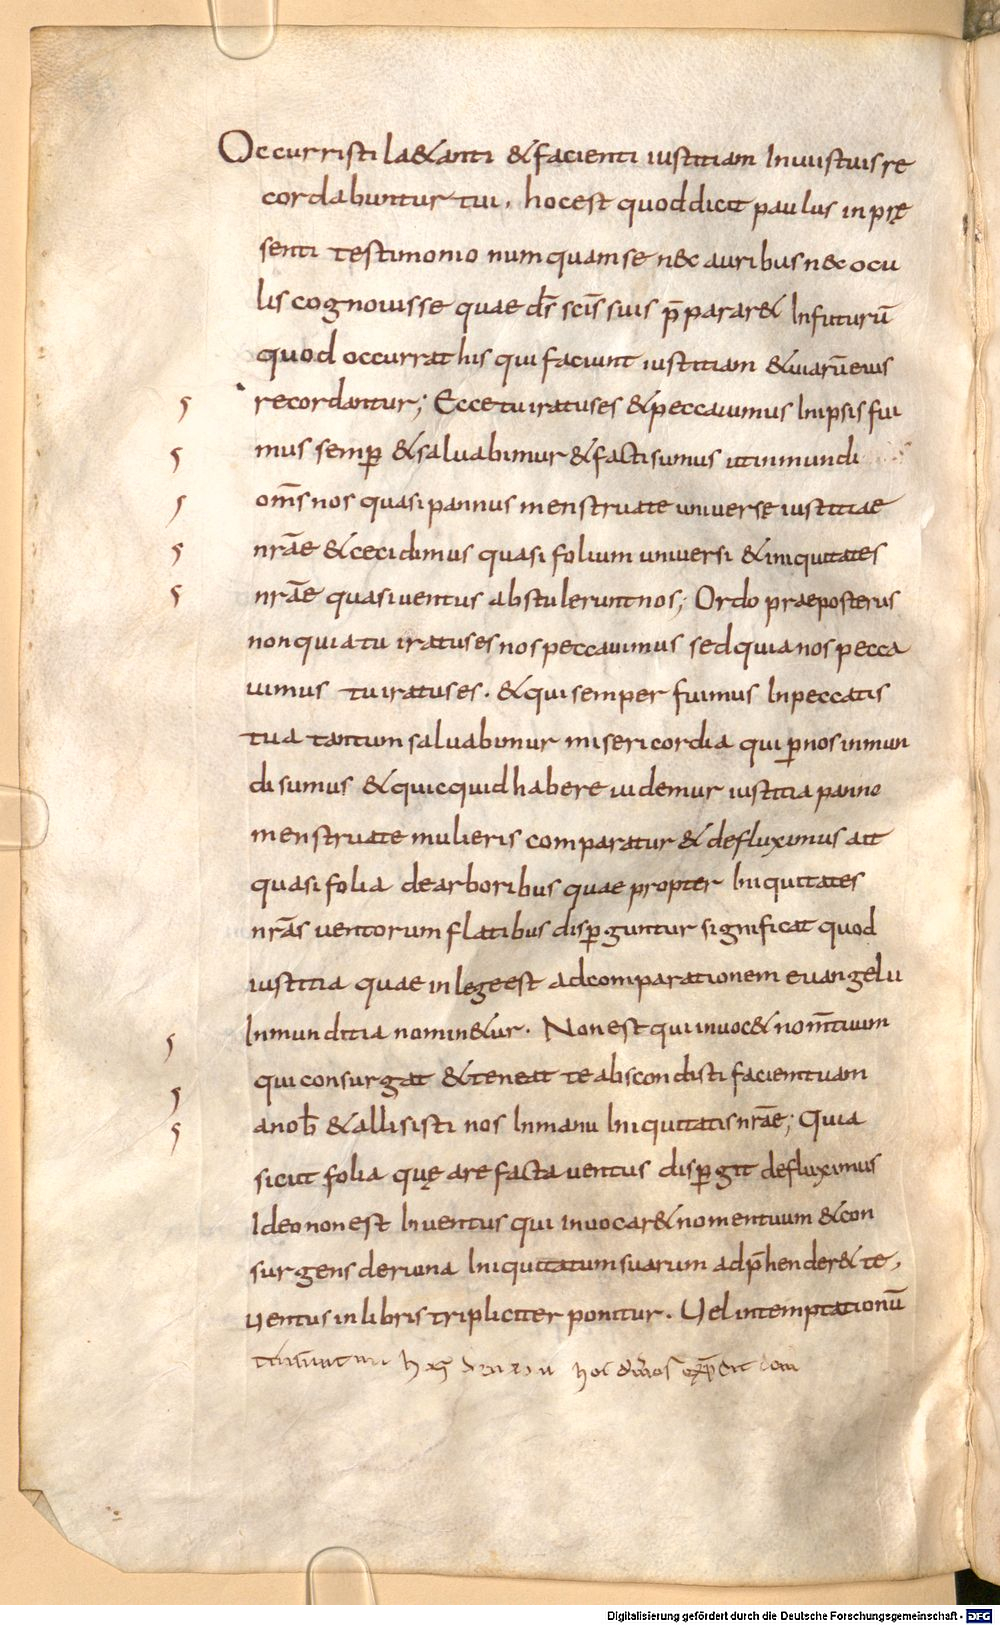 Occurristi la&anti & facienti iustitiam In uiis tuis re
cordabuntur tui. hoc est quod dicit paulus in prę
senti testimonio numquam se n&c auribus n&c ocu
lis cognouisse quae d̅s sc̅is suis p̅parar& In futuru̅
quod occurrat his qui faciunt iustitiam & uiaru̅ eius
recordantur; Ecce tu iratus es & peccauimus In ipsis fui
mus semꝑ & saluabimur & facti sumus ut inmundi
om̅s nos quasi pannus menstruate uniuersę iustitiae
nr̅ae & cecidimus quasi folium uniuersi & iniquitates
nr̅ae quasi uentus abstulerunt nos; Ordo praeposterus
non quia tu iratus es nos peccauimus sed quia nos pecca
uimus tu iratus es. & qui semper fuimus In peccatis
tua tantum saluabimur misericordia qui ꝑ nos inmun
di sumus & quicquid habere uidemur iustitia panno
menstruate mulieris comparatur & defluximus ait
quasi folia de arboribus quae propter Iniquitates
nr̅as uentorum flatibus disꝑguntur significat quod
iustitia quae in lege est ad comparationem euangelii
Inmunditia nomin&ur. Non est qui inuoc& nom̅ tuum
qui consurgat & teneat te abscondisti faciem tuam
a nob̅ & allisisti nos In manu Iniquitatis nr̅ae; Quia
sicut folia quę arefacta uentus disꝑgit defluximus
Ideo non est Inuentus qui inuocar& nomen tuum & con
surgens de ruina Iniquitatum suarum adp̅hender& te,
Uentus in libris tripliciter ponitur. Uel in temptationu̅